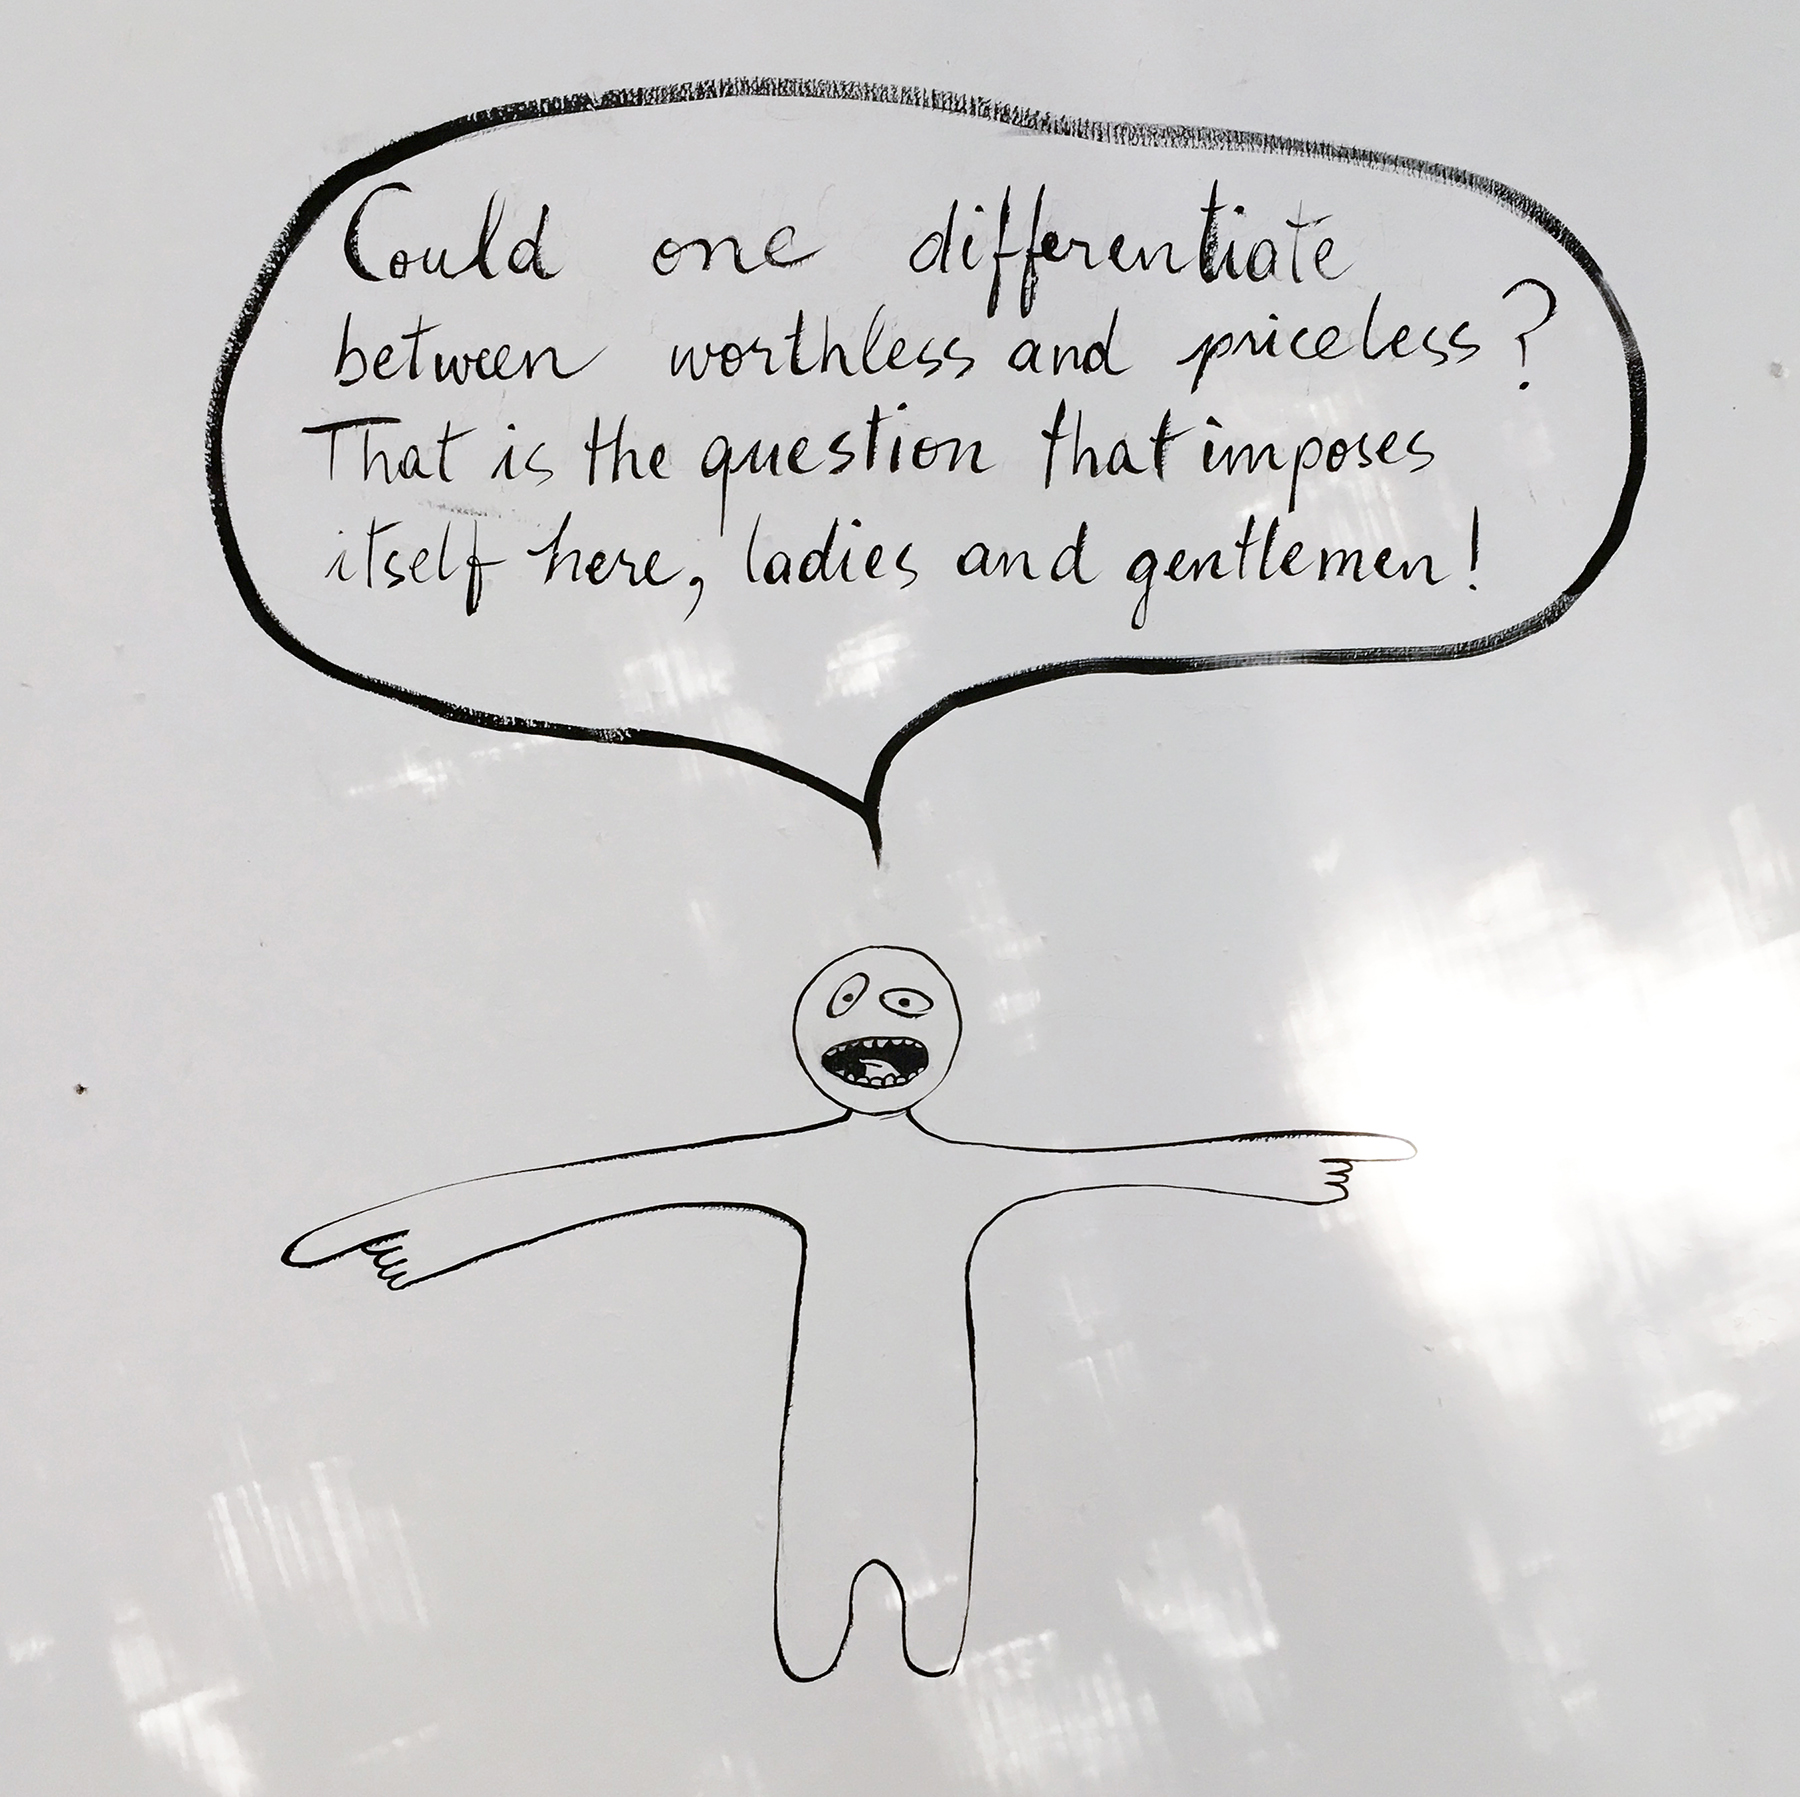 Could one differentiate
between worthless and priceless?
That is the question that imposes
itself here, ladies and gentlemen!